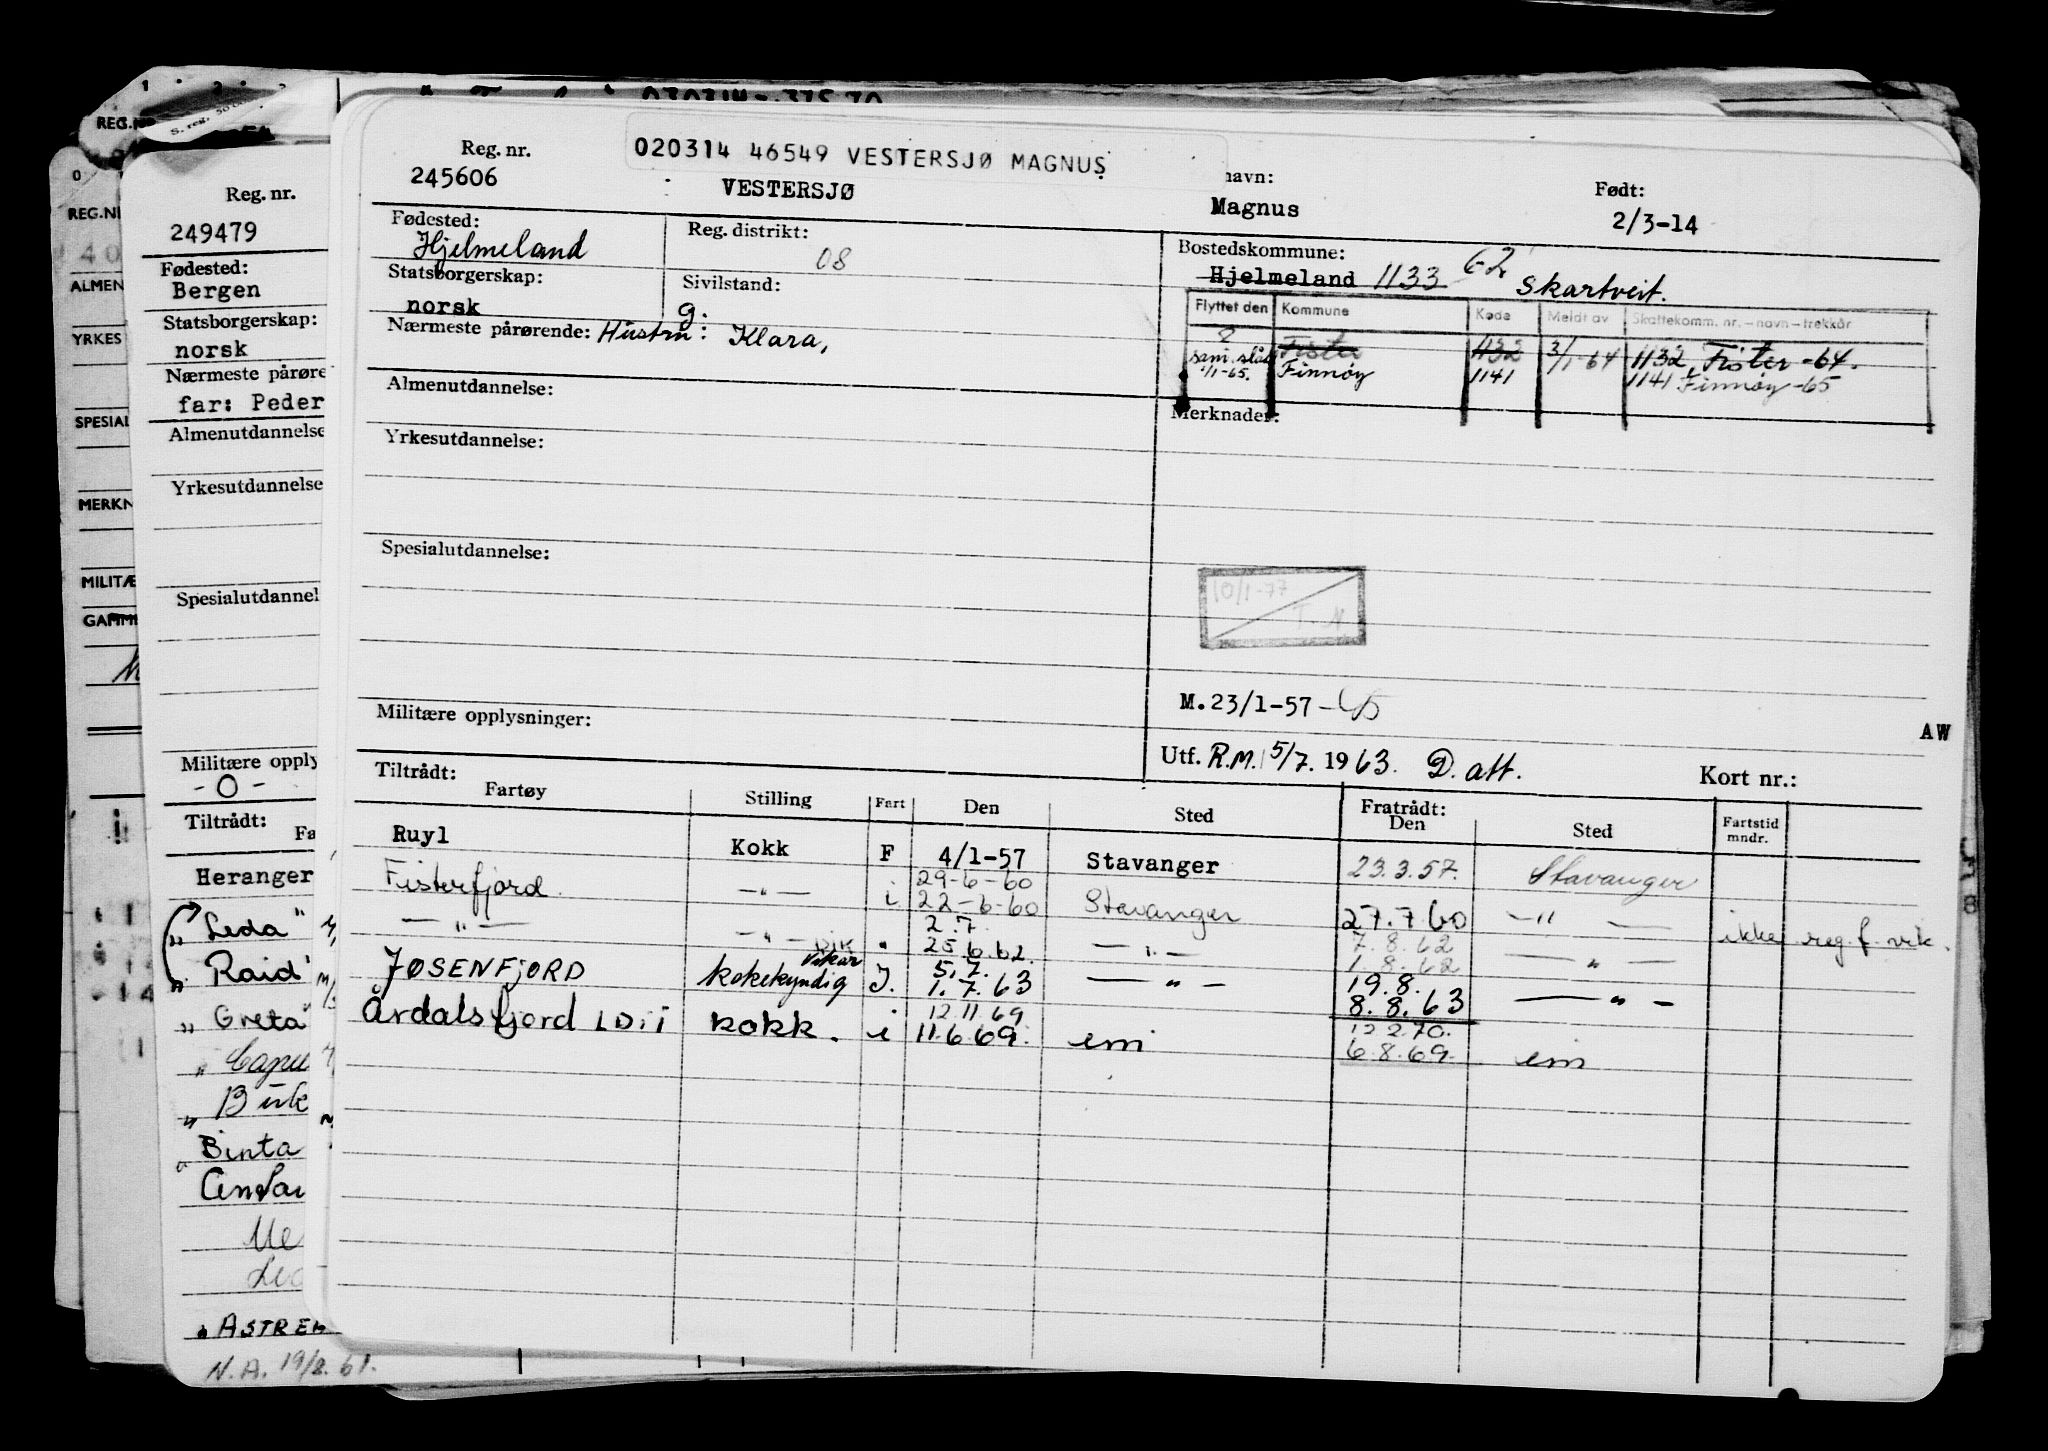 020314 46549 VESTERSJØ MAGNUS
Reg. nr.
245606
VESTERSJØ
navn:
Magnus
Født:
2/3-14
Fødested:
Hjelmeland
Reg. distrikt:
08
Bostedskommune:
Hjelmeland 1133 62 Skartveit.
Statsborgerskap:
norsk
Sivilstand:
g.
Flyttet den Kommune Kode Meldt av Skattekomm. nr. - navn - trekkår
? Fister 1132 3/1-64 1132 Fister -64.
sam. slått 1/1-65. Finnøy 1141 1141 Finnøy -65
Nærmeste pårørende: Hustru: Klara,
Almenutdannelse:
Merknader:
Yrkesutdannelse:
Spesialutdannelse:
10/1-77
T. N.
M.23/1-57
AW
Militære opplysninger:
Utf. R.M. 5/7. 1963. D. att.
Kort nr.:
Tiltrådt:
Fartøy Stilling Fart Den Sted Fratrådt: Den Sted Fartstid mndr.
Ruyl Kokk F 4/1-57 Stavanger 23.3.57. Stavanger
29-6-60
Fisterfjord -"- i 22-6-60 Stavanger 27.7.60 -"- ikke reg. f. vik.
2.7. 7.8.62
-"- -"- " 25.6.62. -"- 1.8.62 -"-
Vikar 5.7. 19.8.
JØSENFJORD kokekyndig I. 1.7.63 -"- 8.8.63 -"-
12.11.69 12.2.70.
Årdalsfjord LDii kokk. i 11.6.69. em 6.8.69. em
REG.NR
S. reg.
Reg. nr.
249479
Fødested:
Bergen
Statsborgerskap:
norsk
Nærmeste pårøre
far: Peder
Almenutdannelse
Yrkesutdannelse
Spesialutdannel
Militære opply
-O-
Tiltrådt:
Fa
Heranger
" Leda"
" Raid"
" Greta"
"
"
" Binta
" ASTRE
N.A. 19/2.61.
REG.NR
40
ALMEN
YRKES
SPESIAL
MERKN
MILITÆ
GAMM